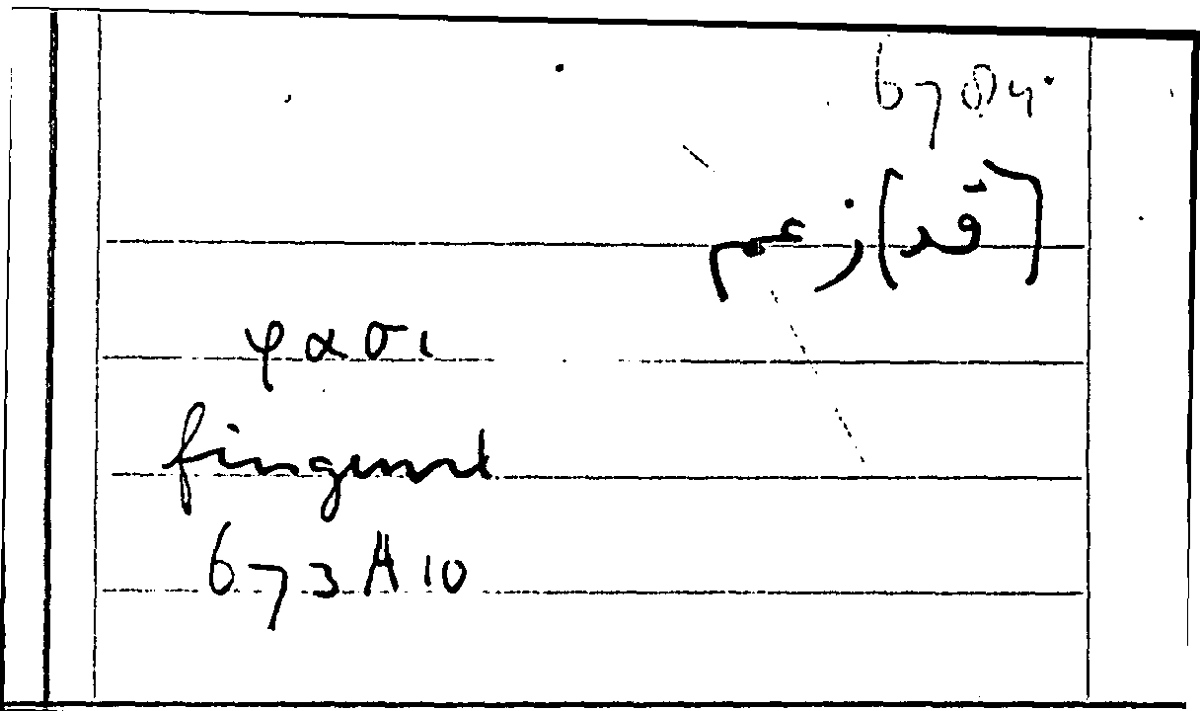 (قد) زعم
φασι
fingunt
673 A 10